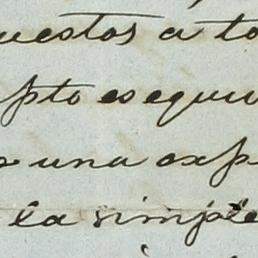 uestos a to
pto es equiv
una exp
la simple